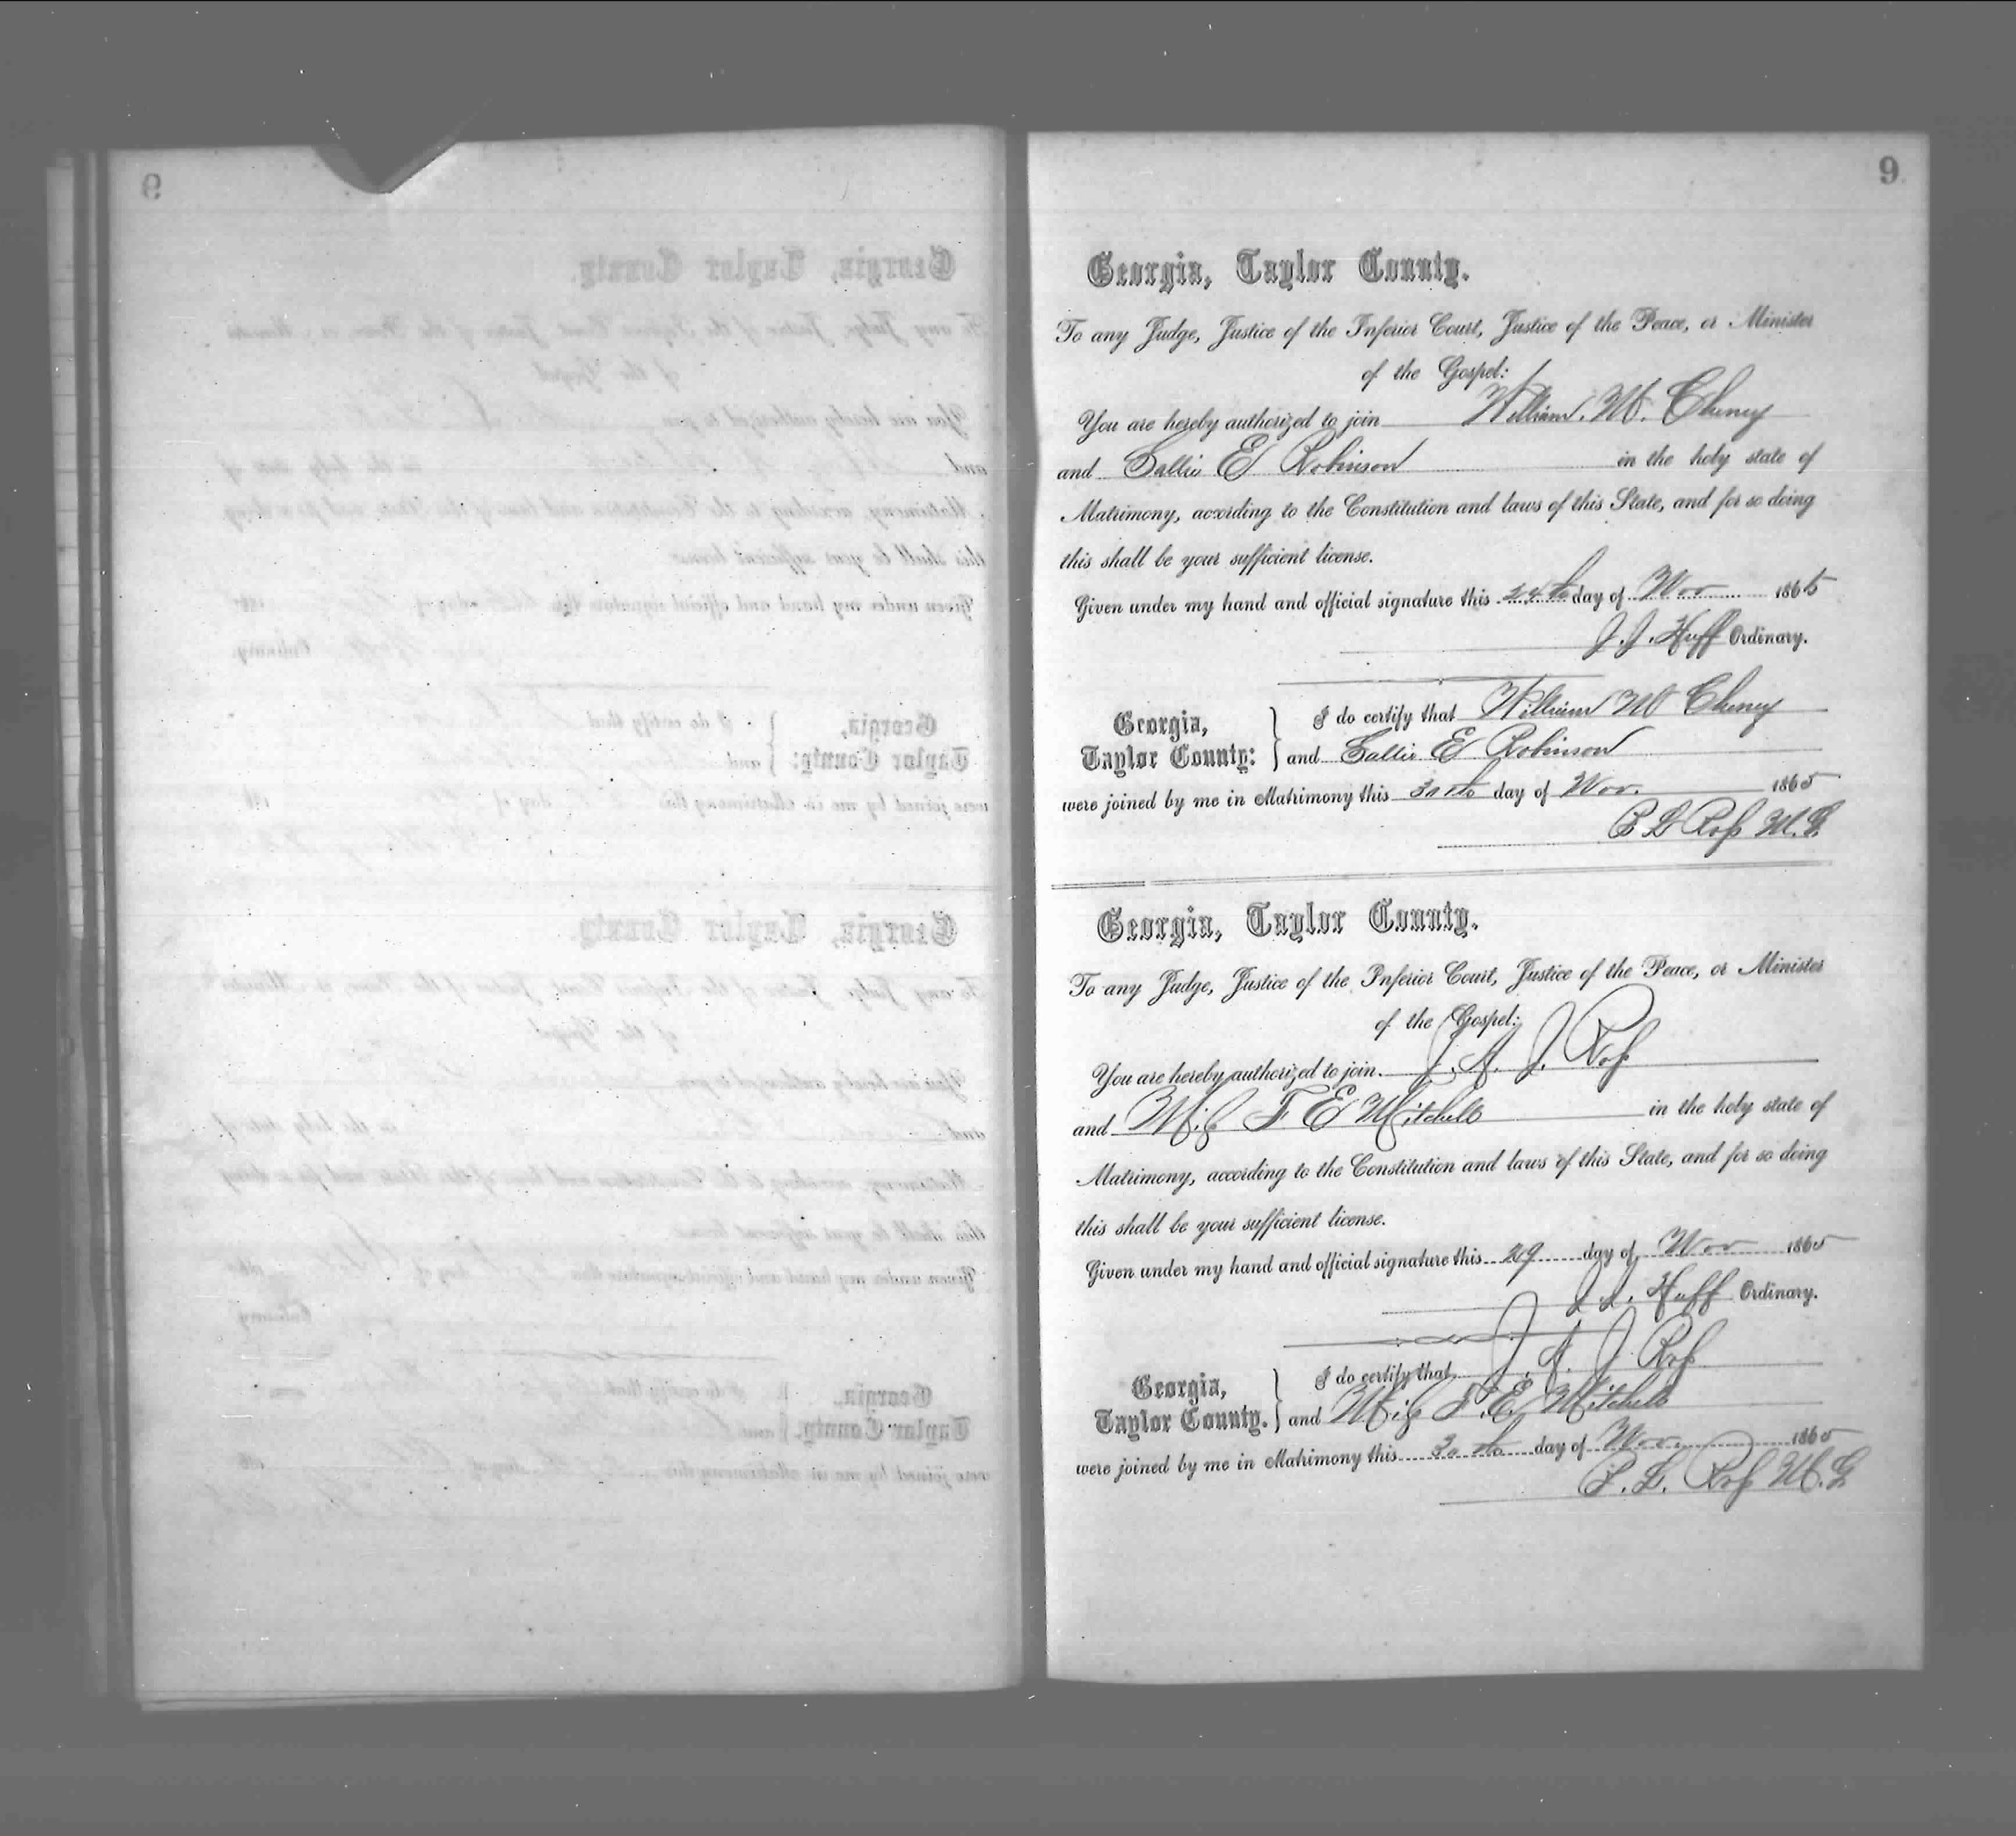 9
Georgia, Taylor County.
To any Judge, Justice of the Inferior Court, Justice of the Peace, or Minister
of the Gospel:
You are hereby authorized to join William. W. Cheney
and Sallie E Robinson in the holy state of
Matrimony, according to the Constitution and laws of this State, and for so doing
this shall be your sufficient license.
Given under my hand and official signature this day of Nov 1865
J. J. Huff Ordinary.
Georgia,
Taylor County:
I do certify that William W Cheney
and Sallie E Robinson
were joined by me in Matrimony this 30th day of Nov. 1865
Ross M. G.
Georgia, Taylor County.
To any Judge, Justice of the Inferior Court, Justice of the Peace, or Minister
of the Gospel:
You are hereby authorized to join. J. A. J. Ross
and Miss F E Mitchell in the holy state of
Matrimony, according to the Constitution and laws of this State, and for so doing
this shall be your sufficient license.
Given under my hand and official signature this 29 day of Nov 1865
J. J. Huff Ordinary.
Georgia,
Taylor County.
I do certify that J. A. J. Ross
and Miss F. E. Mitchell
were joined by me in Matrimony this 30th day of Nov. 1865
Ross M. G.